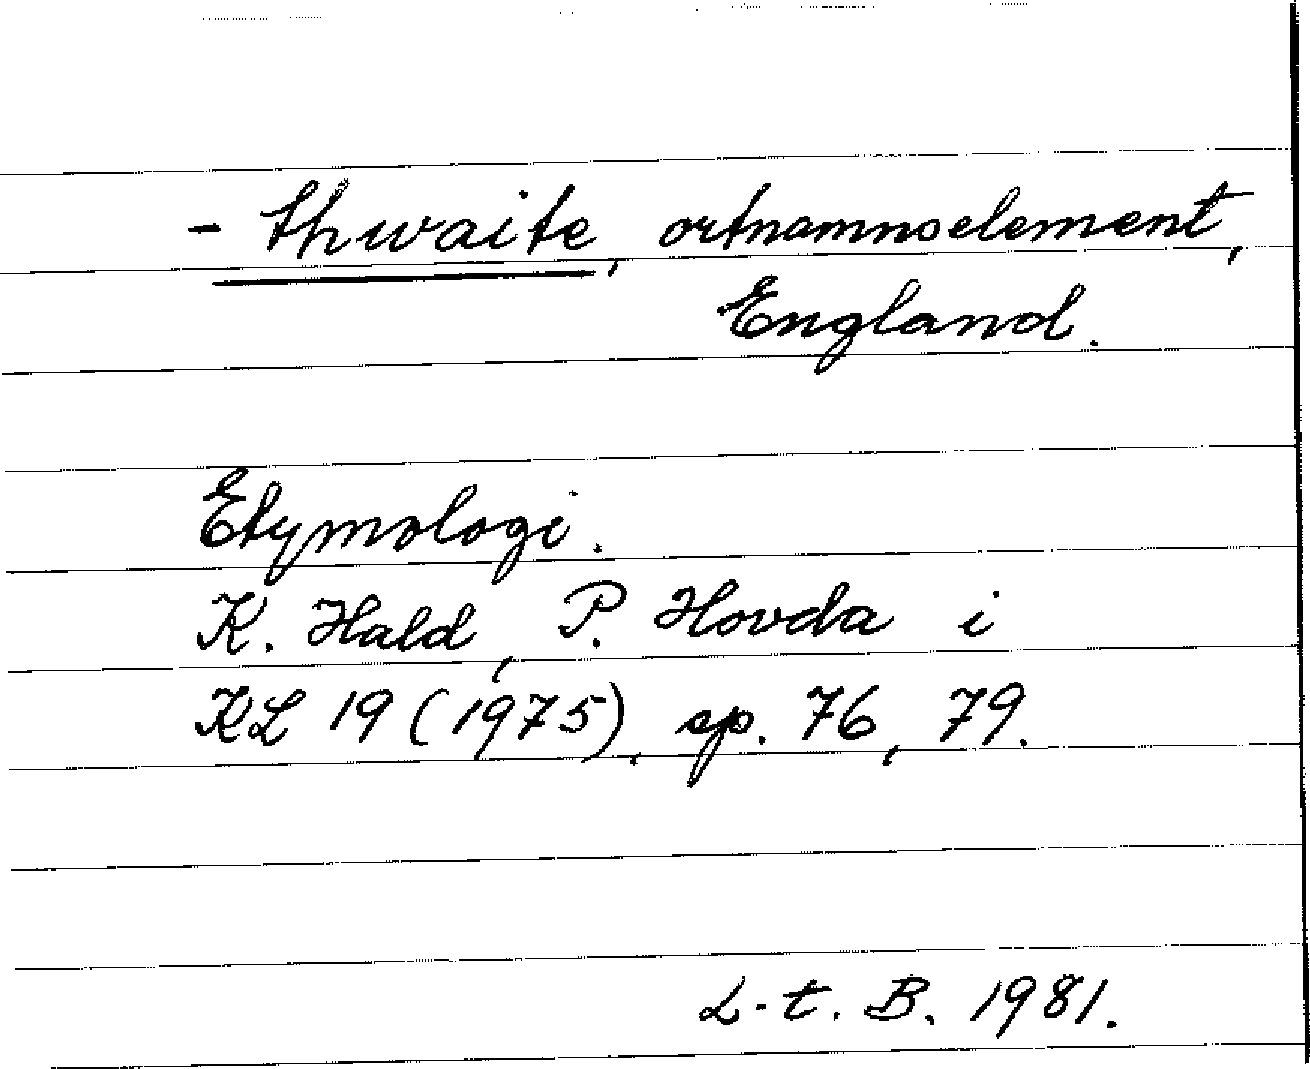 - thwaite, ortnamnselement,
England.
Etymologi.
K. Hald, P. Hovda i
KL 19 (1975), sp. 76, 79.
L-t. B. 1981.